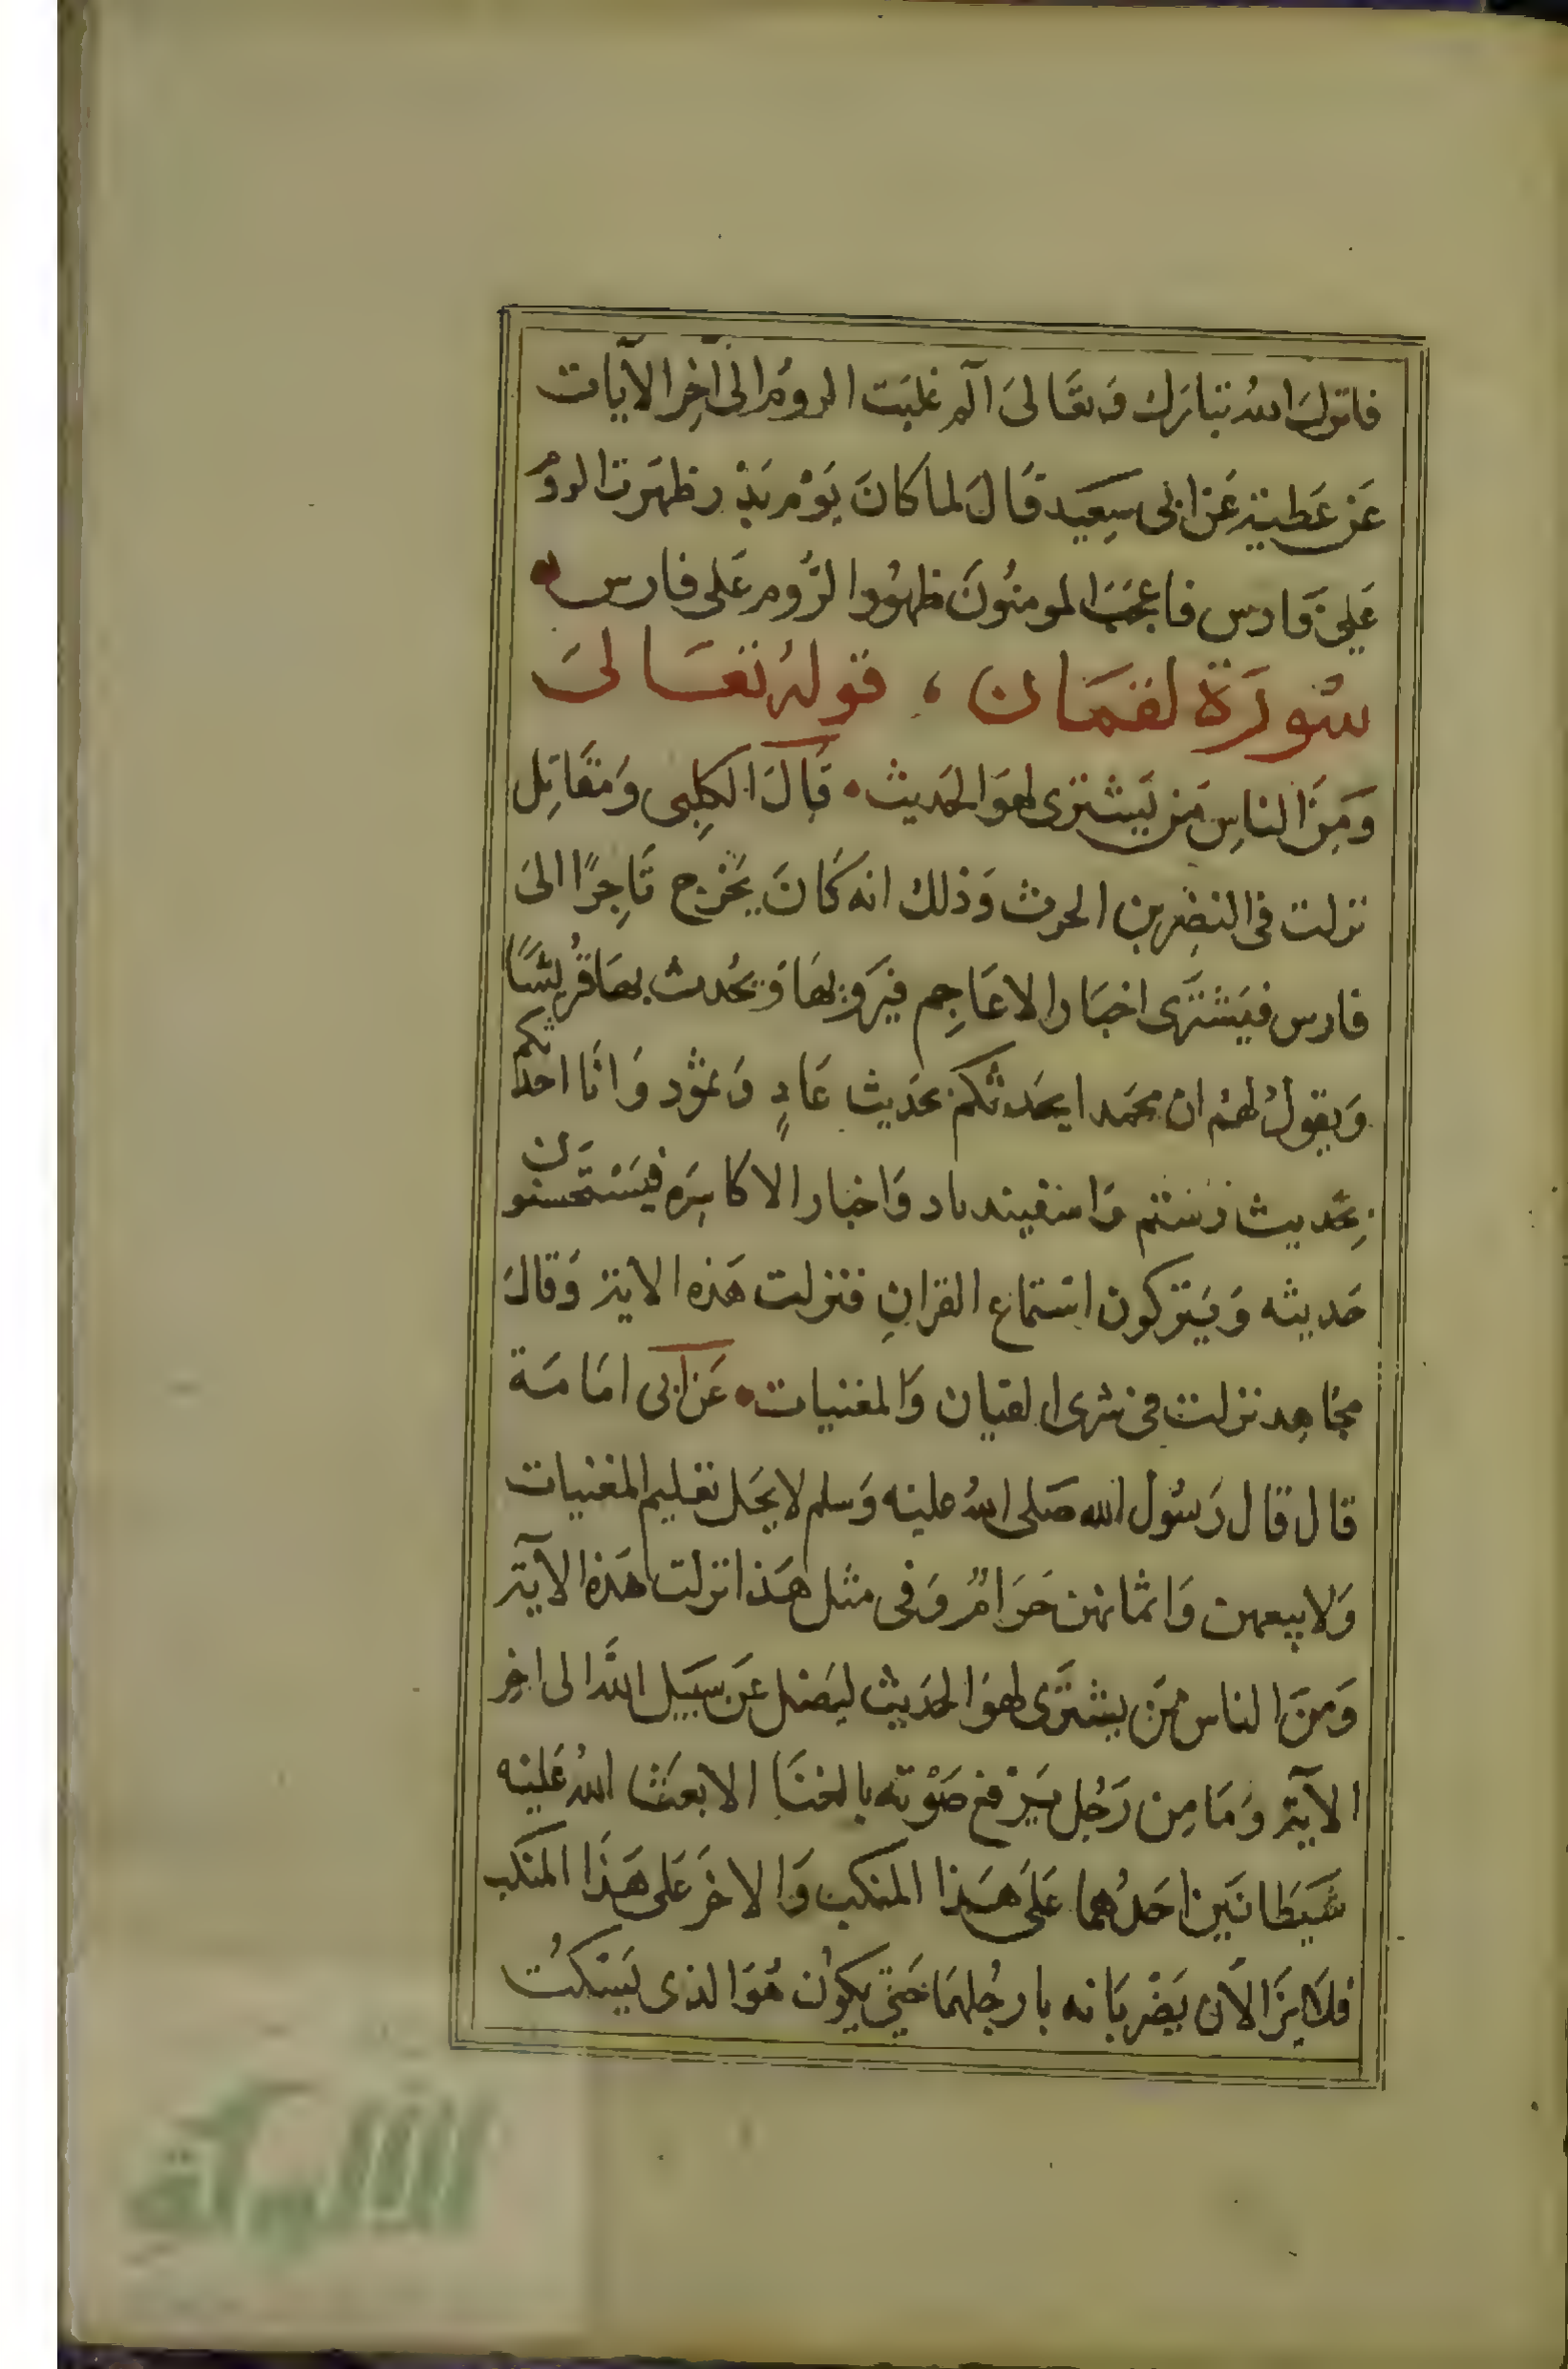 فانزل الله تبارك وتعالى الم غلبت الروم الى اخر الآيات
عن عطية عن ابى سعيد قال لما كان يوم بدر ظهرت الروم
على فارس فاعجب المومنون ظهور الروم على فارس
سورة لقمان ، قوله تعالى
ومن الناس من يشترى لهو الحديث • قال الكلبى ومقاتل
نزلت فى النضر بن الحرث وذلك انه كان يخرج تاجرًا الى
فارس فيشترى اخبار الاعاجم فيرويها ويحدث بها قريشا
ويقول لهم ان محمدا يحدثكم بحديث عادٍ وثمود وانا احدثكم
بحديث رستم واسفيندباد واخبار الاكاسره فيستحسنون
حديثه ويتركون استماع القران فنزلت هذه الاية وقال
مجاهد نزلت فى شرى القيان والمغنيات • عن ابى امامة
قال قال رسول الله صلى الله عليه وسلم لا يحل تعليم المغنيات
ولا بيعهن واثمانهن حرام وفى مثل هذا نزلت هذه الآية
ومن الناس من يشترى لهو الحديث ليضل عن سبيل الله الى اخر
الآية وما من رجل يرفع صوته بالغنا الا بعث الله عليه
شيطانين احدهما على هذا المنكب والاخر على هذا المنكب
فلا يزالان يضربانه بارجلهما حتى يكون هو الذى يسكت
الألوكة